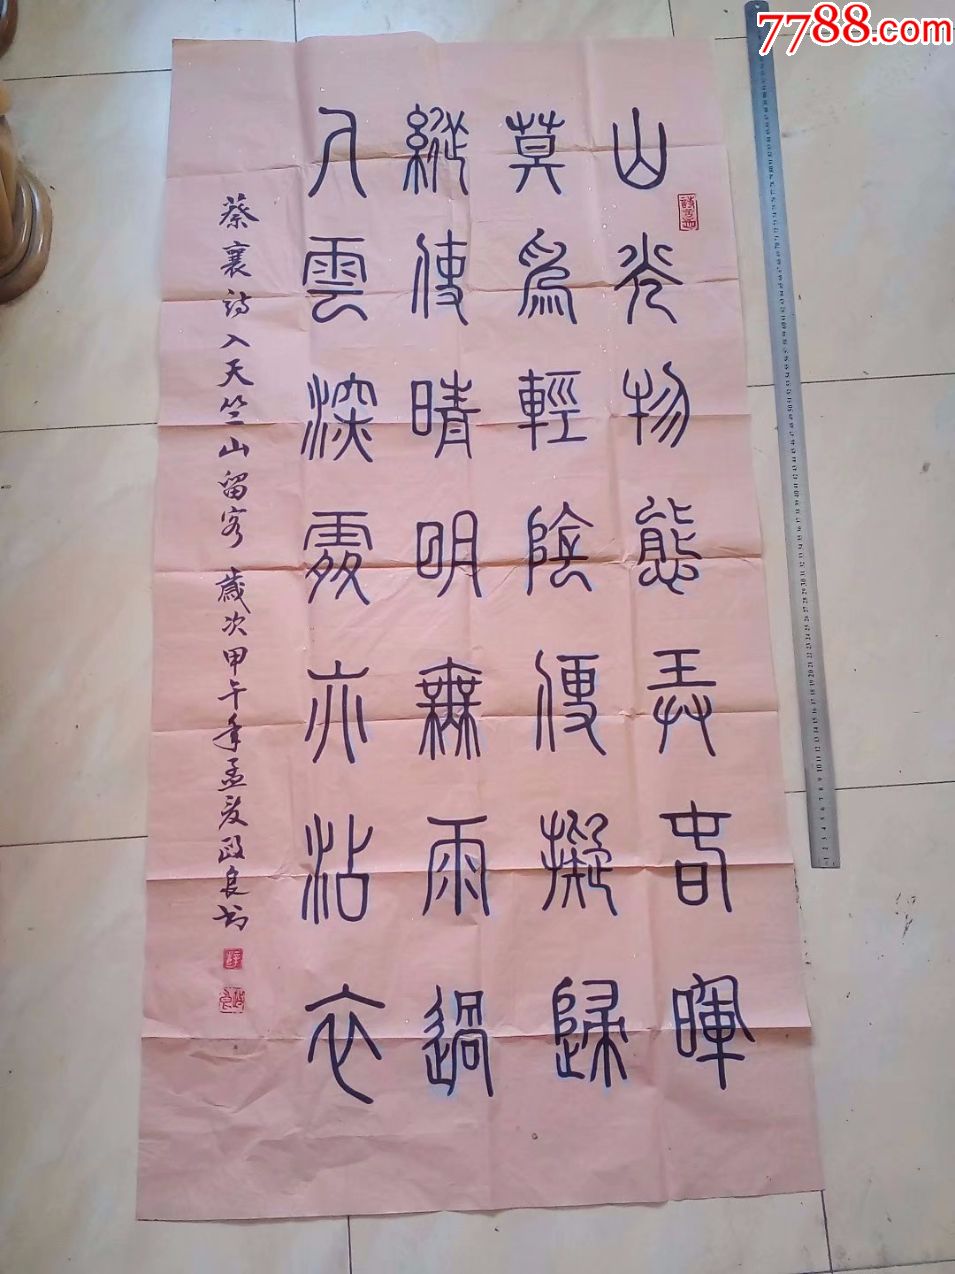 7788.com
山光物態弄春暉
莫爲輕陰便擬歸
縱使晴明無雨過
入雲深處亦沾衣
蔡襄詩入天竺山留客 歲次甲午年孟夏政良書